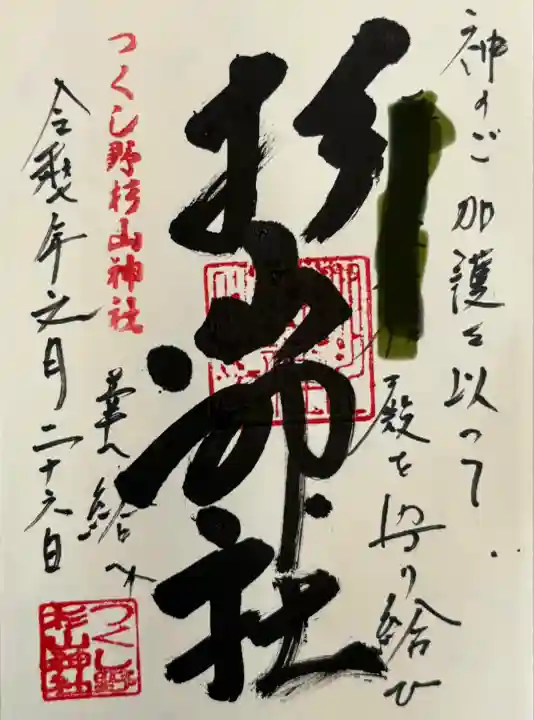 神のご加護を以って
殿を守り給ひ
幸へ給へ
杉山神社
つくし野杉山神社
令和
年
月二十六日
つくし野
杉山神社